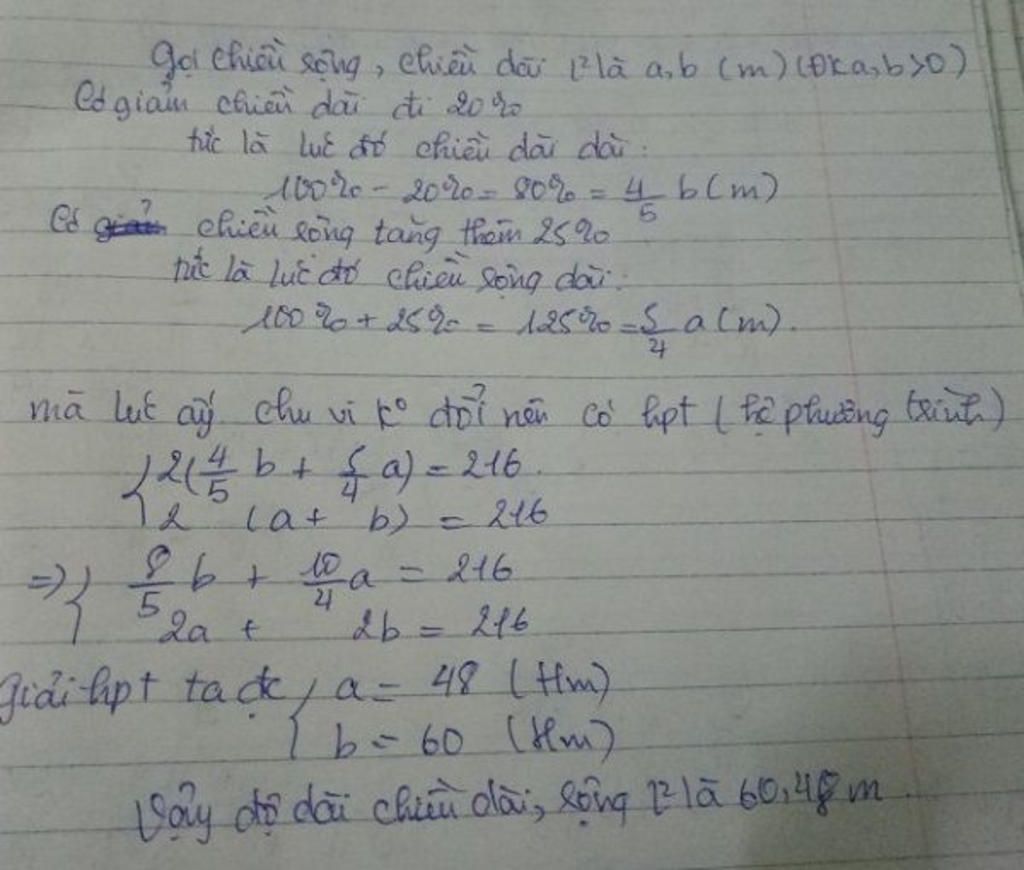 Gọi chiều rộng, chiều dài l² là a, b (m) (Đk a, b >0)
Có giảm chiều dài đi 20%
tức là lúc đó chiều dài dài:
100% - 20% = 80% = 4/5 b (m)
Có chiều rộng tăng thêm 25%
tức là lúc đó chiều rộng dài:
100% + 25% = 125% = 5/4 a (m).
mà lúc ấy chu vi k° đổi nên có hpt (hệ phương trình)
{ 2(4/5 b + 5/4 a) = 216.
2 (a + b) = 216
=> { 8/5 b + 10/4 a = 216
2a + 2b = 216
Giải hpt ta đc { a = 48 (tm)
b = 60 (tm)
Vậy độ dài chiều dài, rộng l² là 60, 48 m